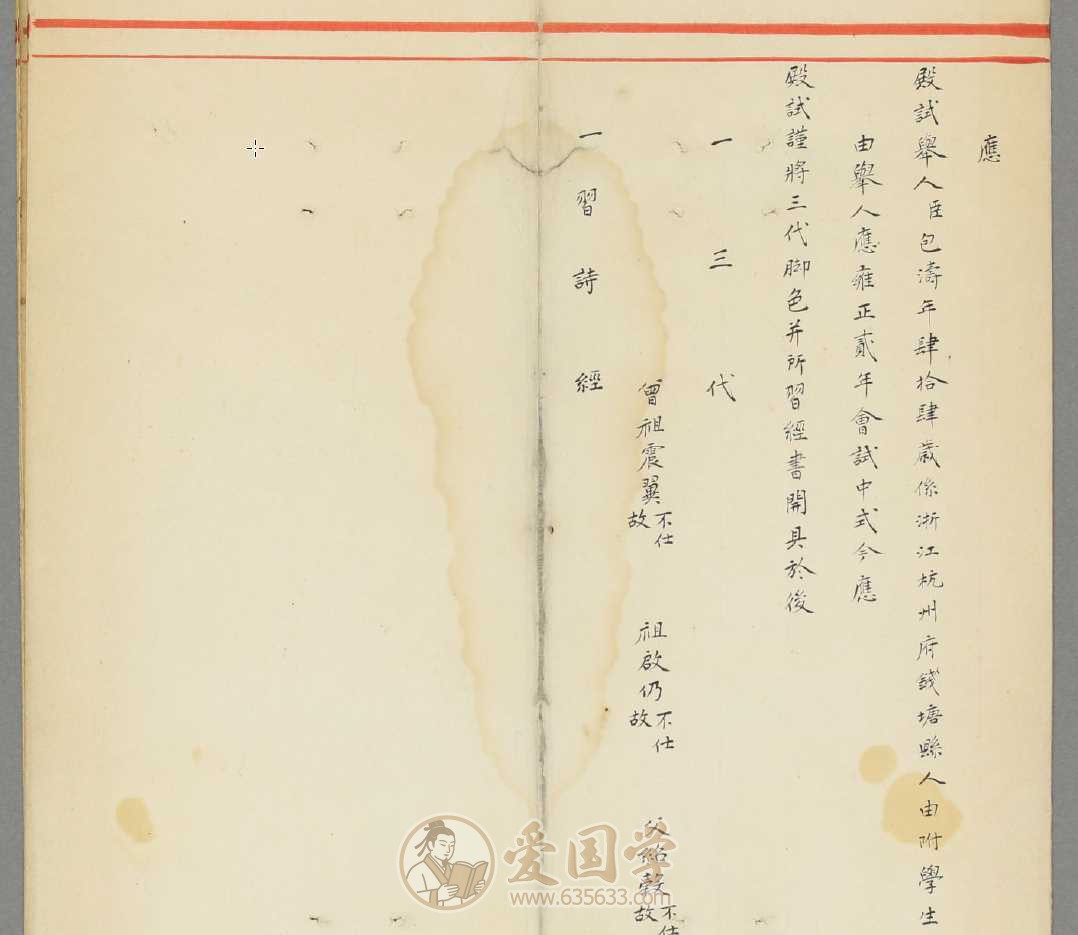 應
殿試舉人臣包濤年肆拾肆歲係浙江杭州府錢塘縣人由附學生
由舉人應雍正貳年會試中式今應
殿試謹將三代脚色并所習經書開具於後
一三代
曾祖震翼不仕故
祖啟仍不仕故
父紹彀不仕故
一習詩經
爱国学
www.635633.com